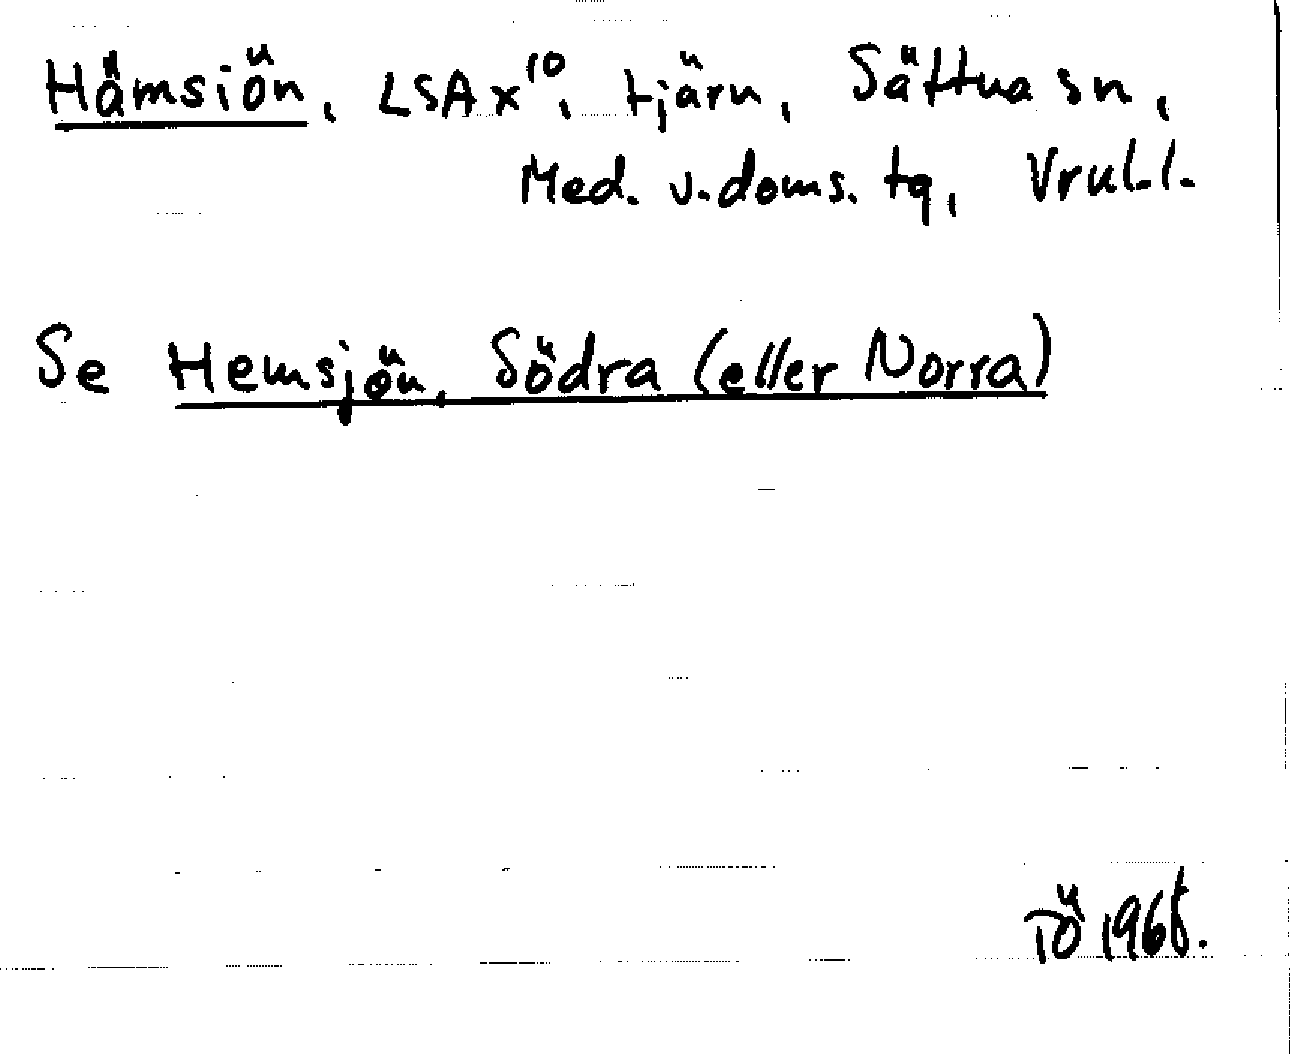 Hämsiön, LSA x¹⁰, tjärn, Sättna sn,
Med. v. doms. tg, Vrnl. l.
Se Hemsjön, Södra (eller Norra)
TÖ